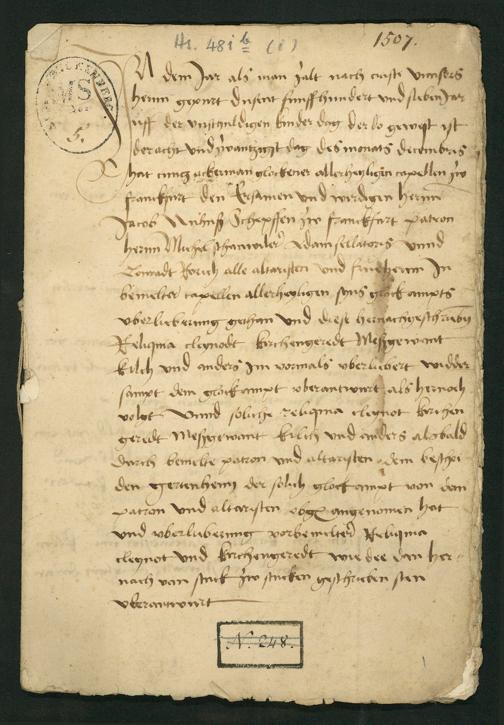 Hs. 48i b (1)
1507.
MS
5.
dem Jar als man zalt nach cristi vnnsers
herrn gepurt dusent funffhundert vnd sieben Jar
vff der vnschuldigen kinder dag der do gewest ist
der acht vnd zwantzigst dag des monats decembris
hat ackerman glockener allerheyligen capellen zw
franckfurt den Ersamen vnd wirdigen herrn
Jacob Schepffen zw franckfurt patron
herrn Michel vnnd
alle altaristen vnd In
bemelter capellen allerheyligen syns glock ampts
vberlieberung gethan vnd diese hernachgeschrieben
Reliquia cleynodt kirchengeredt Messgewant
kilch vnd anders Im vormals vberliebert widder
sampt dem glockampt vberantwurt als hernoch
volgt Vnnd soliche reliquia cleynot kirchen
geredt Messgewant kilich vnd anders alsbald
durch bemelte patron vnd altaristen dem beschei
den der solich glockampt von dem
patron vnd altaristen angenomen hat
vnd vberlieberung vorbemelter Reliquia
cleynot vnd kirchengeredt wie dan her
nach van stuck zw stucken geschrieben sten
vberantwurt
N. 248.